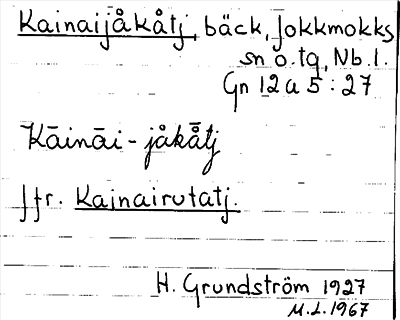 Kainaijåkåtj, bäck, Jokkmokks
sn o. tg, Nb. l.
Gn 12 a 5 : 27
Kāināi - jåkā̊tj
Jfr. Kainairutatj.
H. Grundström 1927
M.L. 1967